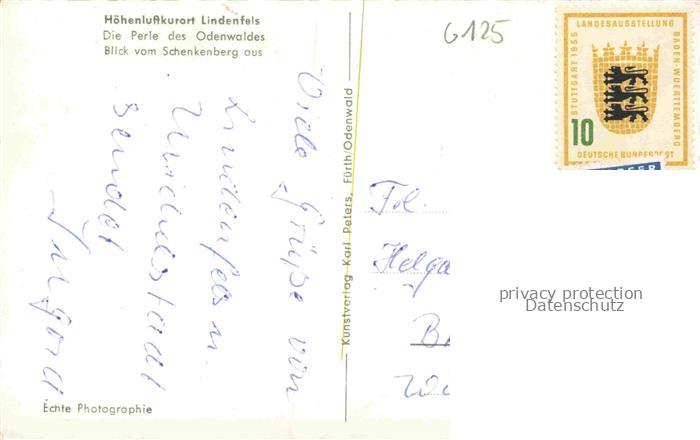 Höhenluftkurort Lindenfels
Die Perle des Odenwaldes
Blick vom Schenkenberg aus
6125
Viele Grüße von
Lindenfels u.
Michelstadt
sendet
Irmgard
Echte Photographie
Kunstverlag Karl Peters, Fürth/Odenwald
LANDESAUSSTELLUNG
STUTTGART 1955
BADEN-WUERTTEMBERG
10
DEUTSCHE BUNDESPOST
Frl.
Helga
privacy protection
Datenschutz